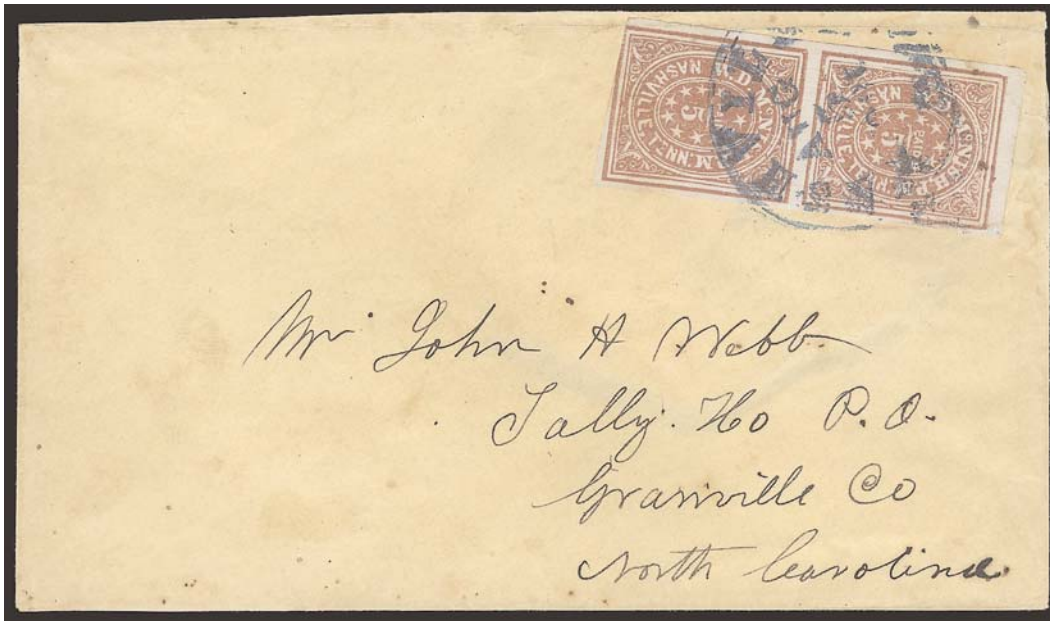 W. D. McNISH
PAID
5
NASHVILLE-TENN.
McNISH P.M.
PAID
5
NASHVILLE
Mr John H Webb
Tally. Ho P. O.
Granville Co
North Carolina